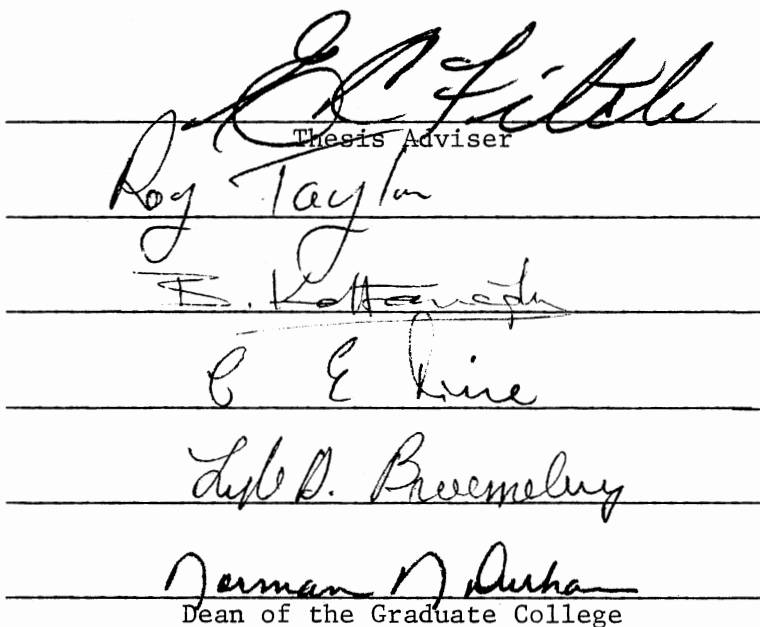 E C Fitch
Thesis Adviser
Roy Taylor
C E
Lyle D. Broemeling
Norman N Durham
Dean of the Graduate College